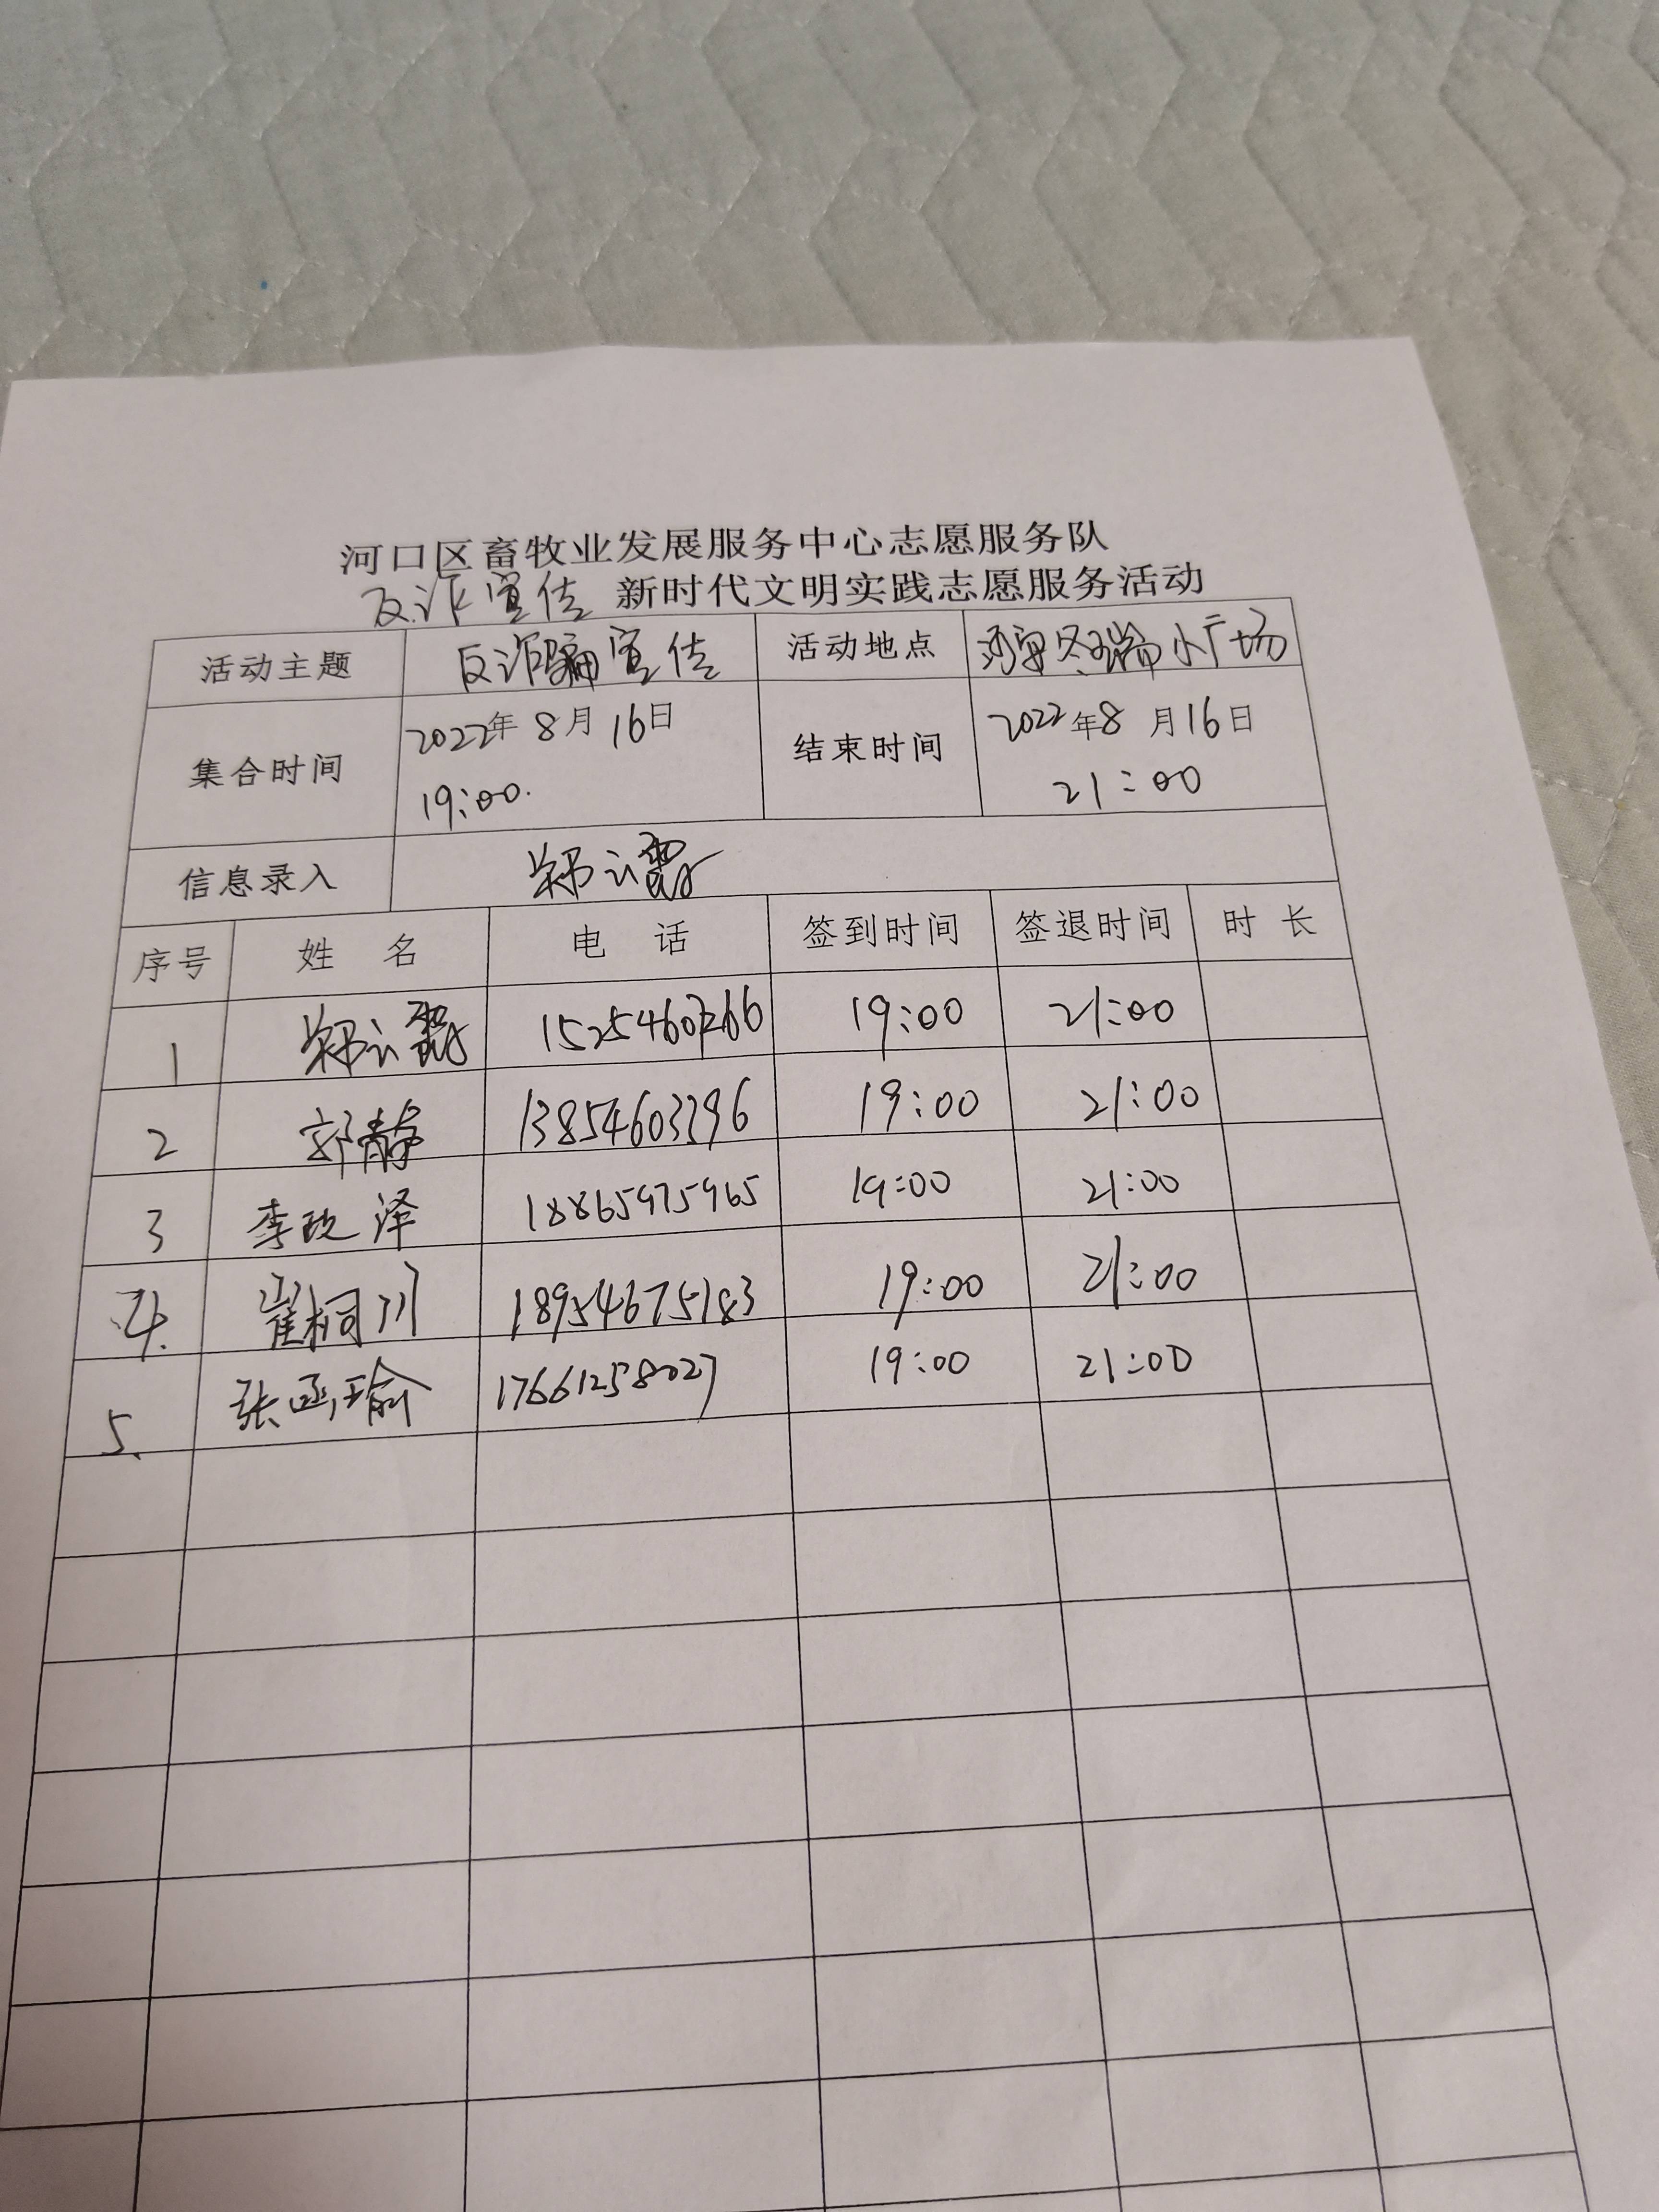 河口区畜牧业发展服务中心志愿服务队
反诈宣传 新时代文明实践志愿服务活动
活动主题 反诈骗宣传 活动地点 小广场
集合时间 2022年8月16日 19:00. 结束时间 2022年8月16日 21:00
信息录入 郑云霞
序号 姓名 电话 签到时间 签退时间 时长
1 郑云霞 19:00 21:00
2 郭静 19:00 21:00
3 李玟泽 18865975965 19:00 21:00
4. 崔桐川 18954675183 19:00 21:00
5. 张函瑜 17661258027 19:00 21:00